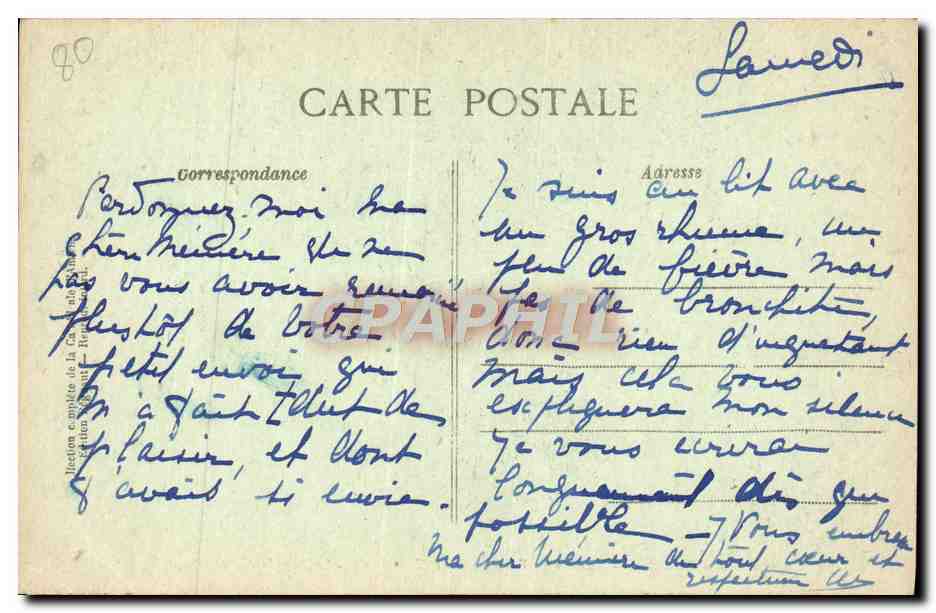 80
Samedi
CARTE POSTALE
Correspondance
Pardonnez-moi ma
chère Mémère de ne
pas vous avoir remercié
plustôt de votre
petit envoi qui
m'a fait tant de
plaisir, et dont
j'avais si envie.
Adresse
Je suis au lit avec
un gros rhume, un
peu de fièvre mais
pas de bronchite,
donc rien d'inquiétant
mais cela vous
expliquera mon silence
Je vous écrirai
longuement dès que
possible - Je vous embrasse
ma cher Mémère de tout cœur et
CPAPHIL